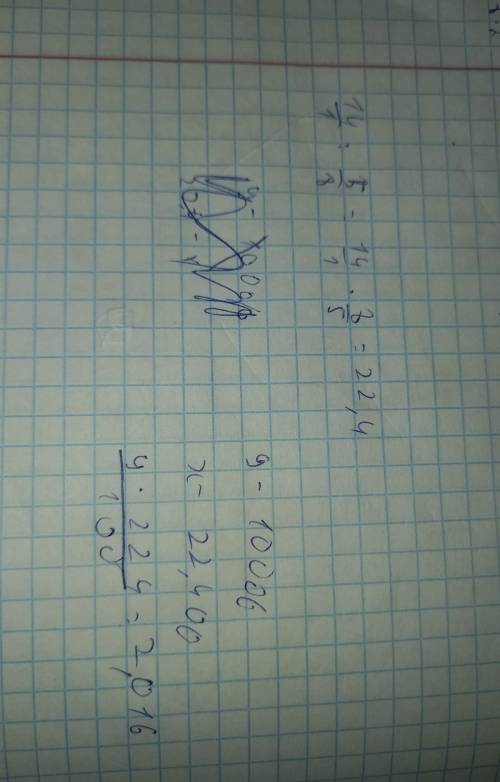 14/1 : 5/8 = 14/1 · 8/5 = 22,4
9 - 100%
x - 22,4%
9 · 22,4 / 100 = 2,016